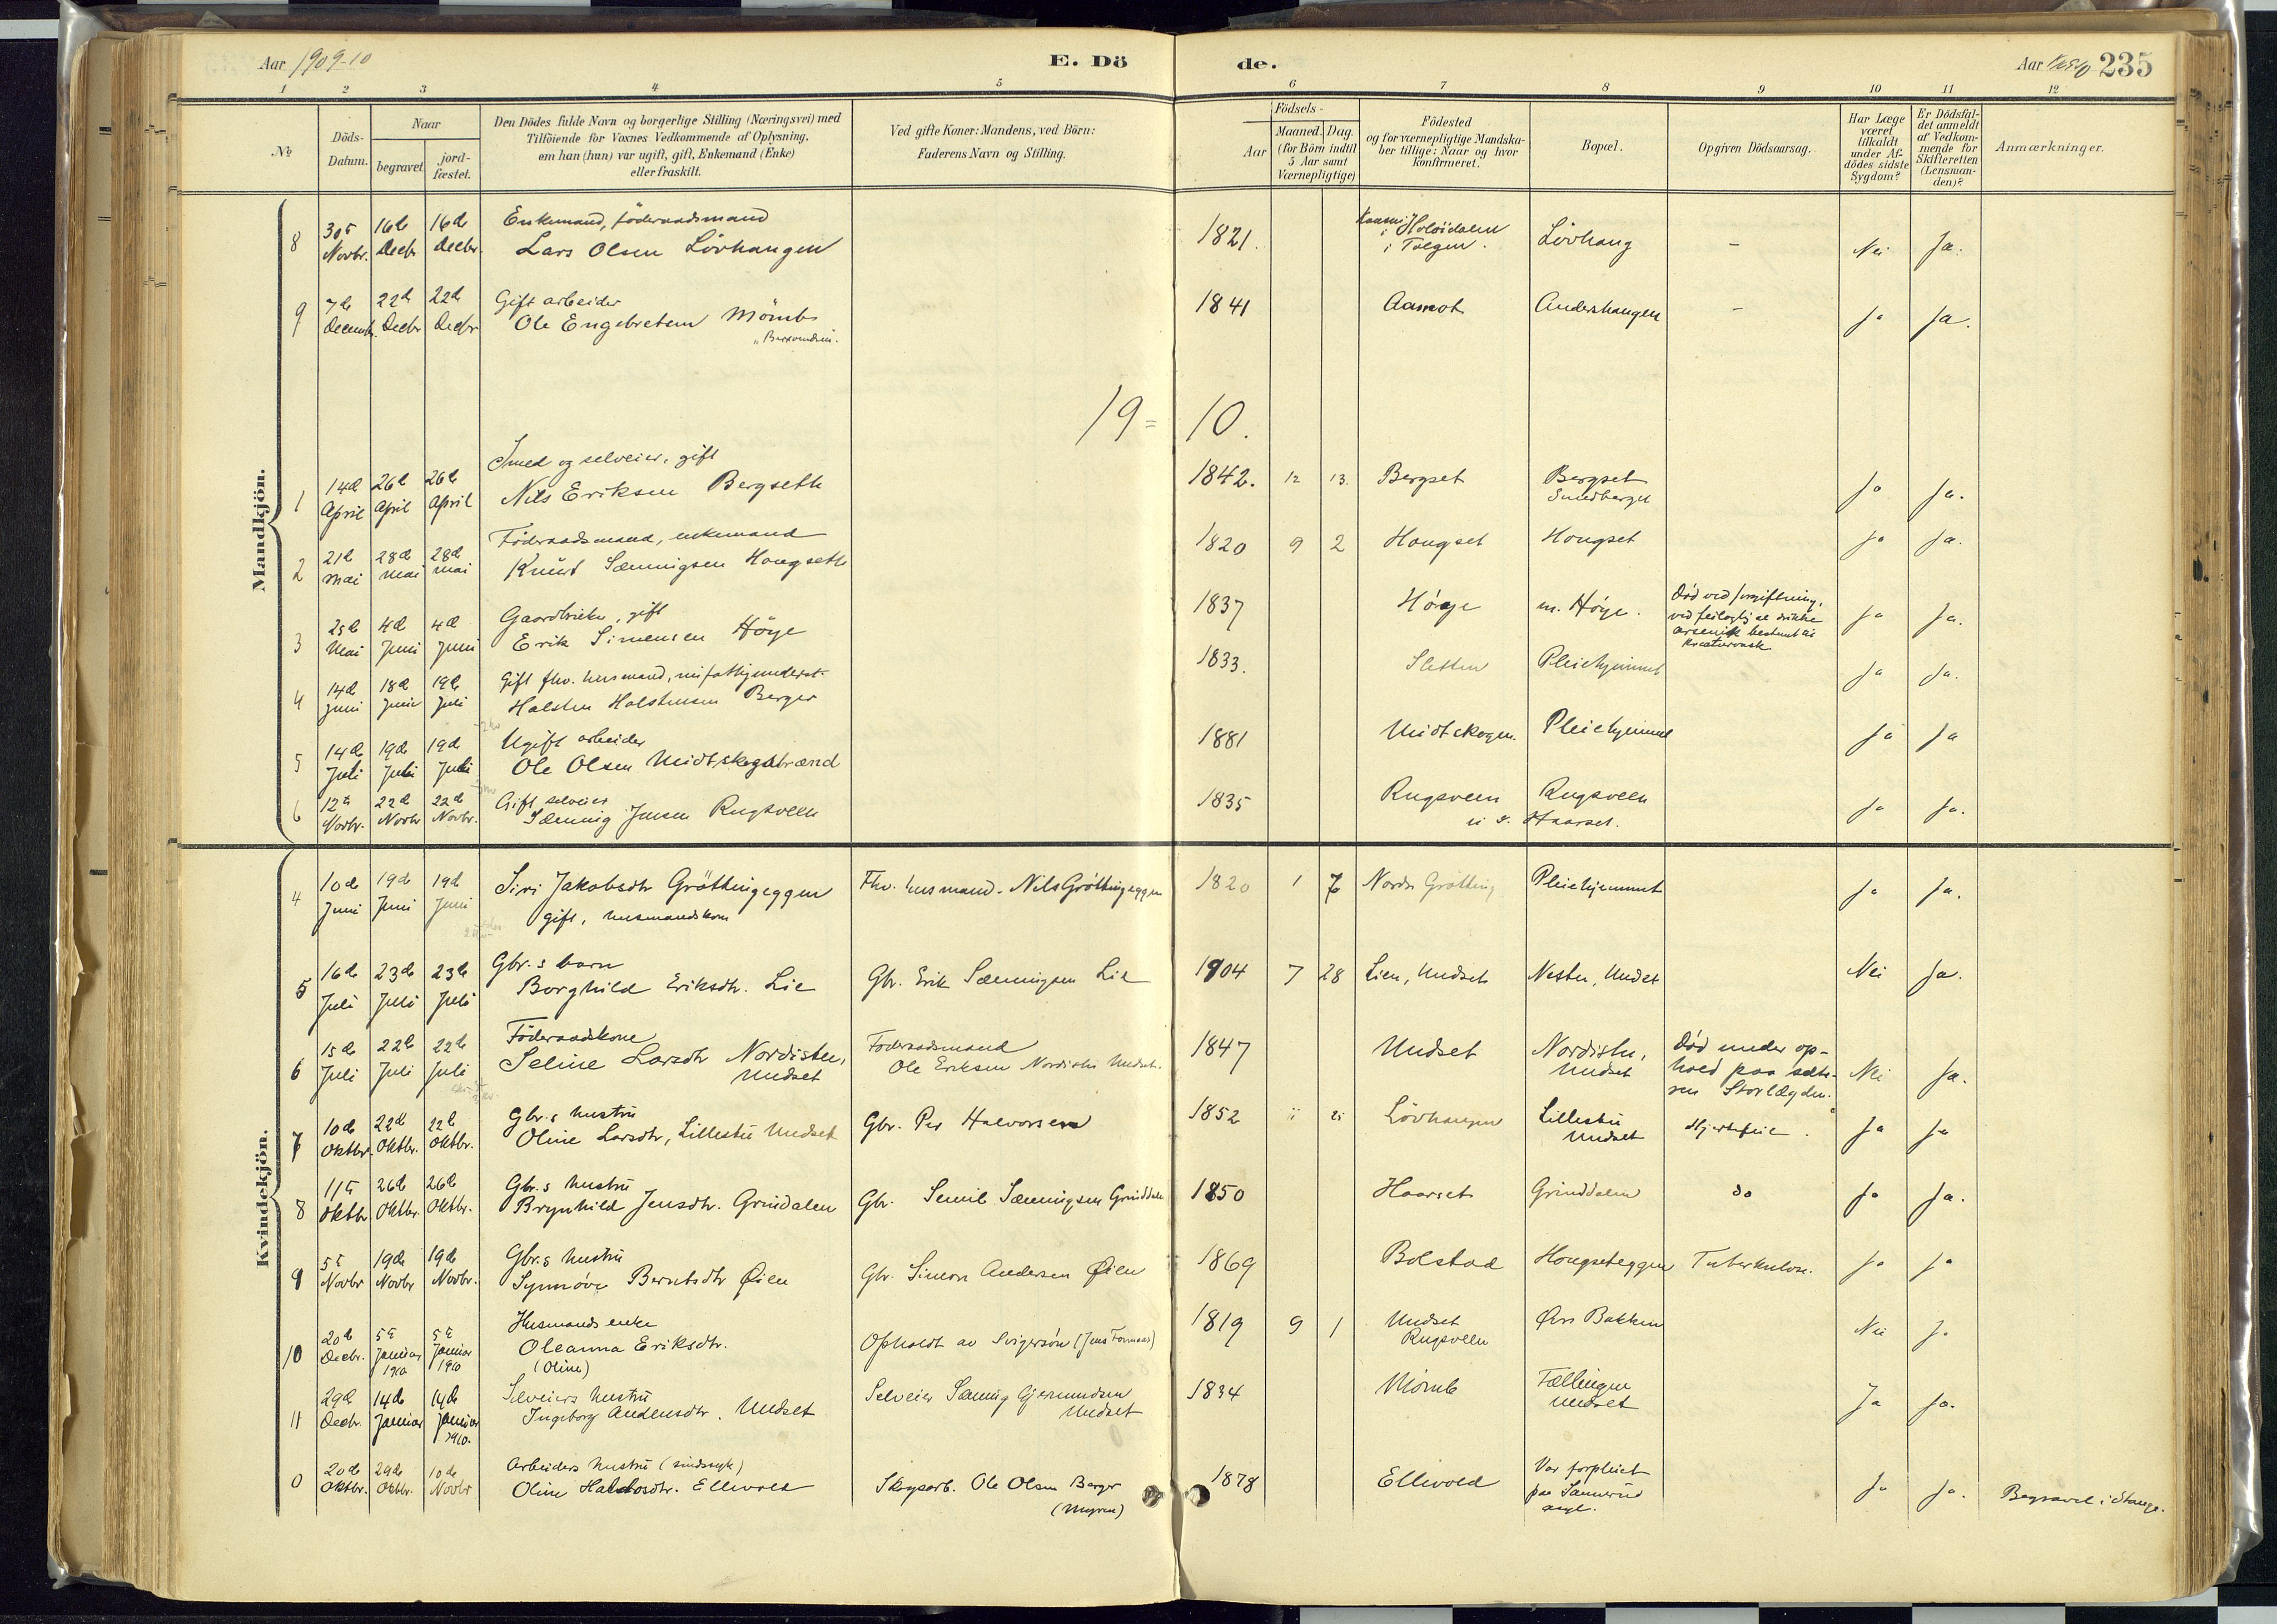 Aar 1909-10
E. Dö
de.
Aar 235
1 2 3 4 5 6 7 8 9 10 11 12
No
Döds-
Datum.
Naar
begravet
jord-
fæstet.
Den Dödes fulde Navn og borgerlige Stilling (Næringsvei) med
Tilföiende for Voxnes Vedkommende af Oplysning,
om han (hun) var ugift, gift, Enkemand (Enke)
eller fraskilt.
Ved gifte Koner: Mandens, ved Börn:
Faderens Navn og Stilling.
Födsels-
Aar
Maaned. Dag.
(for Börn indtil
5 Aar samt
Værnepligtige)
Födested
og for værnepligtige Mandska-
ber tillige: Naar og hvor
konfirmeret.
Bopæl.
Opgiven Dödsaarsag.
Har Læge
været
tilkaldt
under Af-
dödes sidste
Sygdom?
Er Dödsfal-
det anmeldt
af Vedkom-
mende for
Skifteretten
(Lensman-
den)?
Anmærkninger.
Mandkjön.
Enkemand, föderaadsmand
8 Novbr. Decbr. Decbr. Lars Olsen Lövhaugen 1821. i Holöidalen i Tolgen. Lövhaug - Nei Ja.
Gift arbeider
9 7de Decemb. 22de Decbr 22de Decbr Ole Engebretsen Mömb 1841 Aamot Andershaugen - Ja Ja.
19 = 10.
Smed og selveier, gift
1 14de April 26de April 26de April Nils Eriksen Bergseth 1842. 12 13. Bergset Bergset Ja Ja.
Föderaadsmand, enkemand
2 21de Mai 28de Mai 28de Mai Knud Sæmingsen Hougseth 1820 9 2 Hougset Hougset Ja Ja.
Gaardbruker, gift
3 25de Mai 4de Juni 4de Juni Erik Simensen Höye 1837 Höye n. Höye. Död ved forgiftning,
ved feilagtig at drikke
arsenik bestemt til
kreaturvask Ja Ja.
Gift fhv. husmand,
4 14de Juni 18de Juni 19de Juli Halsten Halstensen Berger 1833. Sletten Pleiehjemmet Ja Ja.
Ugift arbeider
5 14de Juli 19de Juli 19de Juli Ole Olsen Midtskogsbrænd 1881 Midtskogen. Pleiehjemmet Ja Ja
Gift selveier
6 12te Novbr. 22de Novbr 22de Novbr. Sæming Jensen Rugsveen 1835 Rugsveen Rugsveen Ja Ja.
Haarset.
Kvindekjön.
4 10de Juni 19de Juni 19de Juni Siri Jakobsdtr Gröttingeggen Fhv. husmand. Nils Gröttingeggen 1820 1 7 Nordr Grötting Pleiehjemmet Ja Ja.
gift, husmandskone
Gbr.s barn
5 16de Juli 23de Juli 23de Juli Borghild Eriksdtr. Lie Gbr. Erik Sæmingsen Lie 1904 7 28 Lien, Undset Nestu, Undset Nei Ja.
Föderaadskone Föderaadsmand
6 15de Juli 22de Juli 22de Juli Seline Larsdtr Nordistu, Undset Ole Eriksen Nordistu Undset. 1847 Undset Nordistu, Undset Död under op-
hold paa sæte-
ren Storlægden. Nei Ja.
Gbr.s hustru
7 10de Oktbr. 22de Oktbr. 22de Oktbr. Oline Larsdtr, Lillestu Undset Gbr. Per Halvorsen 1852 Lövhaugen Lillestu Undset Hjertefeil. Ja Ja
Gbr.s hustru
8 11te Oktbr 26de Oktbr. 26de Oktbr. Brynhild Jensdtr. Grindalen Gbr. Semil Sæmingsen Grinddalen 1850 Haarset Grinddalen do Ja Ja.
Gbr.s hustru
9 5te Novbr 19de Novbr 19de Novbr. Synnöve Berntsdtr Øien Gbr. Simon Andersen Øien 1869 Bolstad Hougseteggen Tuberkulose. Ja Ja
Husmands enke
10 20de Decbr. 5te Januar 1910 5te Januar 1910 Oleanna Eriksdtr. Opholdt av Svigersön 1819 9 1 Undset Rugsveen Øvre Bakken Nei Ja
(Oline)
Selveiers hustru
11 29de Decbr. 14de Januar 14de Januar 1910. Ingeborg Andersdtr. Undset Selveier Sæming Gjermundsen Undset 1834 Mömb Fællingen Undset Ja Ja.
Arbeiders hustru (sindssyk)
0 20de Oktbr. 29de Oktbr. 10de Novbr Oline Halvorsdtr. Ellevold Skogsarb. Ole Olsen Berger 1878 Ellevold Var forpleiet
paa Sannerud
asyl. Ja Ja. Begravet i Stange.